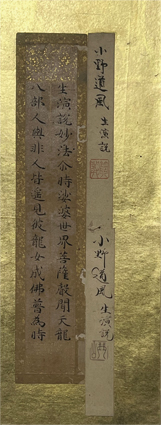 小野道風 生演説
小野道風 生演説
生演說妙法尒時娑婆世界菩薩聲聞天龍
八部人與非人皆遙見彼龍女成佛普為時